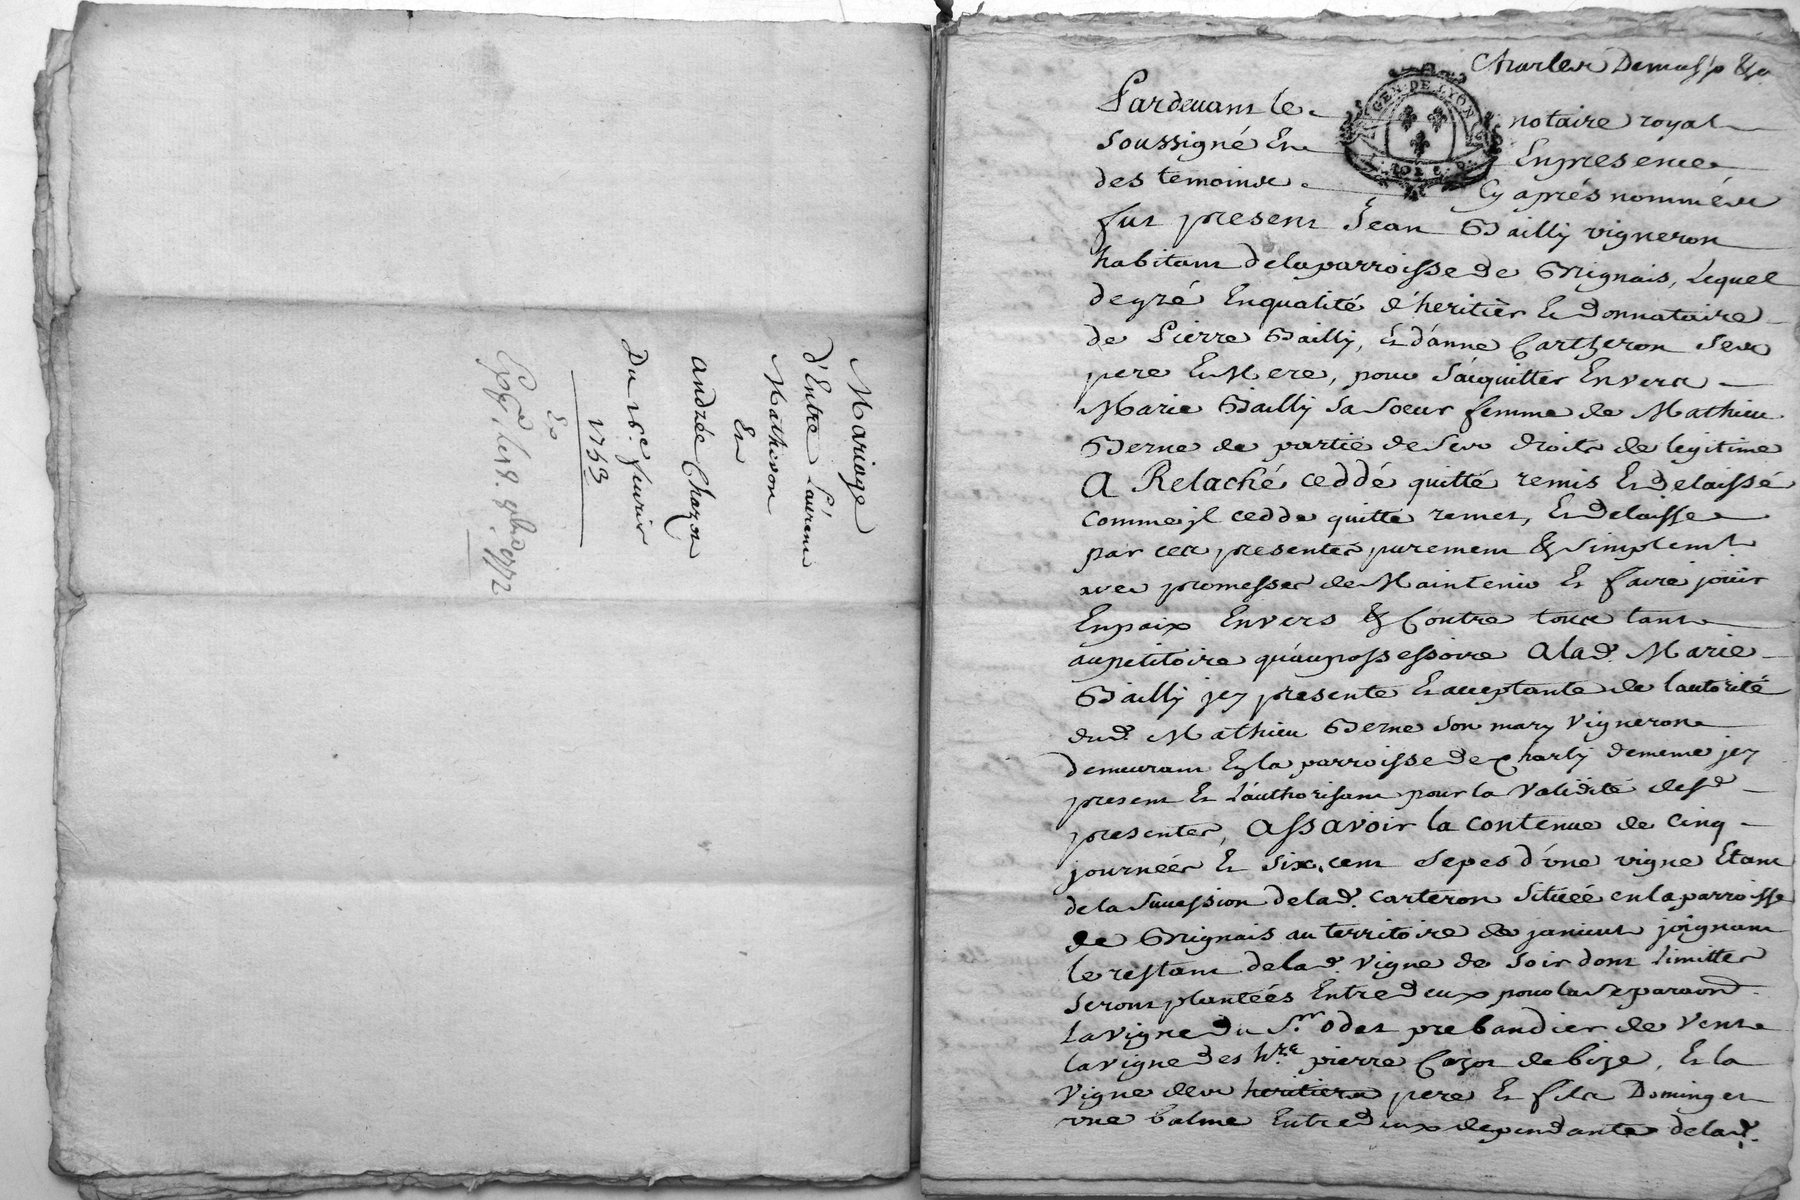 Mariage
d'Entre Laurent
Mathevon
Et
andrée Chazon
Du 16e feurier
1753
Exp
Charles Demasso &a
GEN DE LYON
Pardevant le notaire royal
soussigné Et Enpresence
des temoins Cy aprés nommés
fut present Jean Bailly vigneron
habitant delaparroisse de Brignais, Lequel
degré Enqualité d'heritier Et donnataire
de Pierre Bailly, Et d'anne Cartheron ses
pere Et Mere, pour S'aiquitter Envers
Marie Bailly sa Soeur femme de Mathieu
Berne de partie de Ses droits de legitime
A Relaché ceddé quitté remis Et delaissé
Comme jl cedde quitte remet, Et delaisse
par ces presentes purement & simplemt
avec promesses de Maintenir Et faire jouir
Enpaix Envers & Contre tous tant
aupetitoire qu'aupossessoire Alad. Marie
Bailly jcy presente Et acceptante de l'autorité
dud. Mathieu Berne son mary Vigneron
demeurant En la parroisse de Charly dememe jcy
present Et L'authorisant pour la Validité desd
presentes, Assavoir la contenue de cinq
journées Et six cent sepes d'vne vigne Etant
de la Succession delad. carteron Situéé en laparroisse
de Brignais au territoire de janicut joignant
le restant delad. vigne de soir dont Limittes
seront plantéés Entredeux pour la separaon
La vigne du Sr. Odet prebandier de vent
la vigne des hrs pierre Cozon de bize, Et la
Vigne des heritiers pere Et fils Dominget
vne balme Entredeux dependante delad.